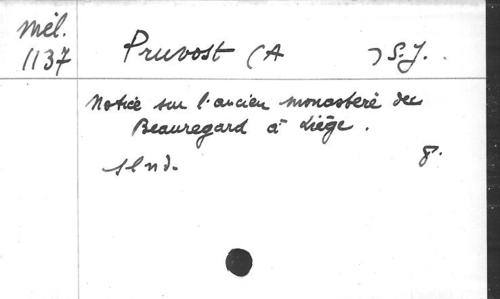 Mél.
1137
Pruvost (A      ) S.J.
Notice sur l'ancien monastère de
Beauregard à Liége.
s l n d.
8.